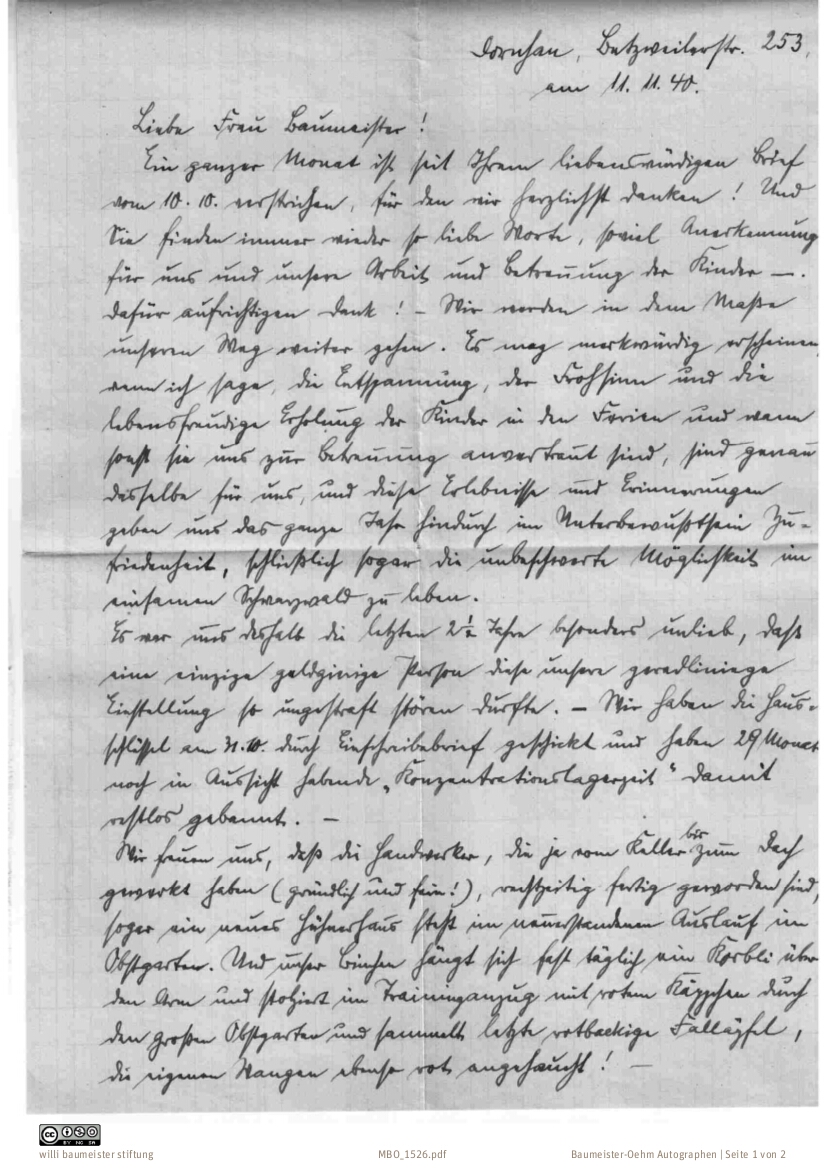 Dornhan, Betzweilerstr. 253,
am 11. 11. 40.
Liebe Frau Baumeister!
Ein ganzer Monat ist seit Ihrem liebenswürdigen Brief
vom 10. 10. verstrichen, für den wir herzlichst danken! Und
Sie finden immer wieder so liebe Worte, soviel Anerkennung
für uns und unsere Arbeit und Betreuung der Kinder —.
dafür aufrichtigen Dank! – Wir werden in dem Maße
unseren Weg weiter gehen. Es mag merkwürdig erscheinen,
wenn ich sage, die Entspannung, der Frohsinn und die
lebensfreudige Erholung der Kinder in den Ferien und wann
sonst sie uns zur Betreuung anvertraut sind, sind genau
dasselbe für uns, und diese Erlebnisse und Erinnerungen
geben uns das ganze Jahr hindurch im Unterbewußtsein Zu-
friedenheit, schließlich sogar die unbeschwerte Möglichkeit im
einsamen Schwarzwald zu leben.
Es war uns deshalb die letzten 2½ Jahre besonders unlieb, daß
eine einzige geldgierige Person diese unsere geradlinige
Einstellung so ungestraft stören durfte. – Wir haben die Haus-
schlüssel am 31.10. durch Einschreibebrief geschickt und haben 29 Monat
noch in Aussicht habende „Konzentrationslagerzeit" damit
restlos gebannt. —
Wir freuen uns, daß die Handwerker, die ja vom Keller bis zum Dach
gewerkt haben (gründlich und fein!), rechtzeitig fertig geworden sind,
sogar ein neues Hühnerhaus steht im neuerstandenen Auslauf im
Obstgarten. Und unser hängt sich fast täglich ein Körbli über
den Arm und stolziert im Traininganzug mit rotem Käppchen durch
den großen Obstgarten und sammelt letzte rotbackige Falläpfel,
die eigenen Wangen ebenso rot angehaucht! —
willi baumeister stiftung
MBO_1526.pdf
Baumeister-Oehm Autographen | Seite 1 von 2